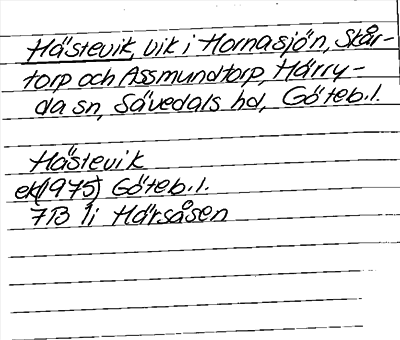 Hästevik, vik i Hornasjön, Skår-
torp och Assmundtorp, Härry-
da sn, Sävedals hd, Göteb.l.
Hästevik
ek(1975) Göteb.l.
7B 1i Hårsåsen